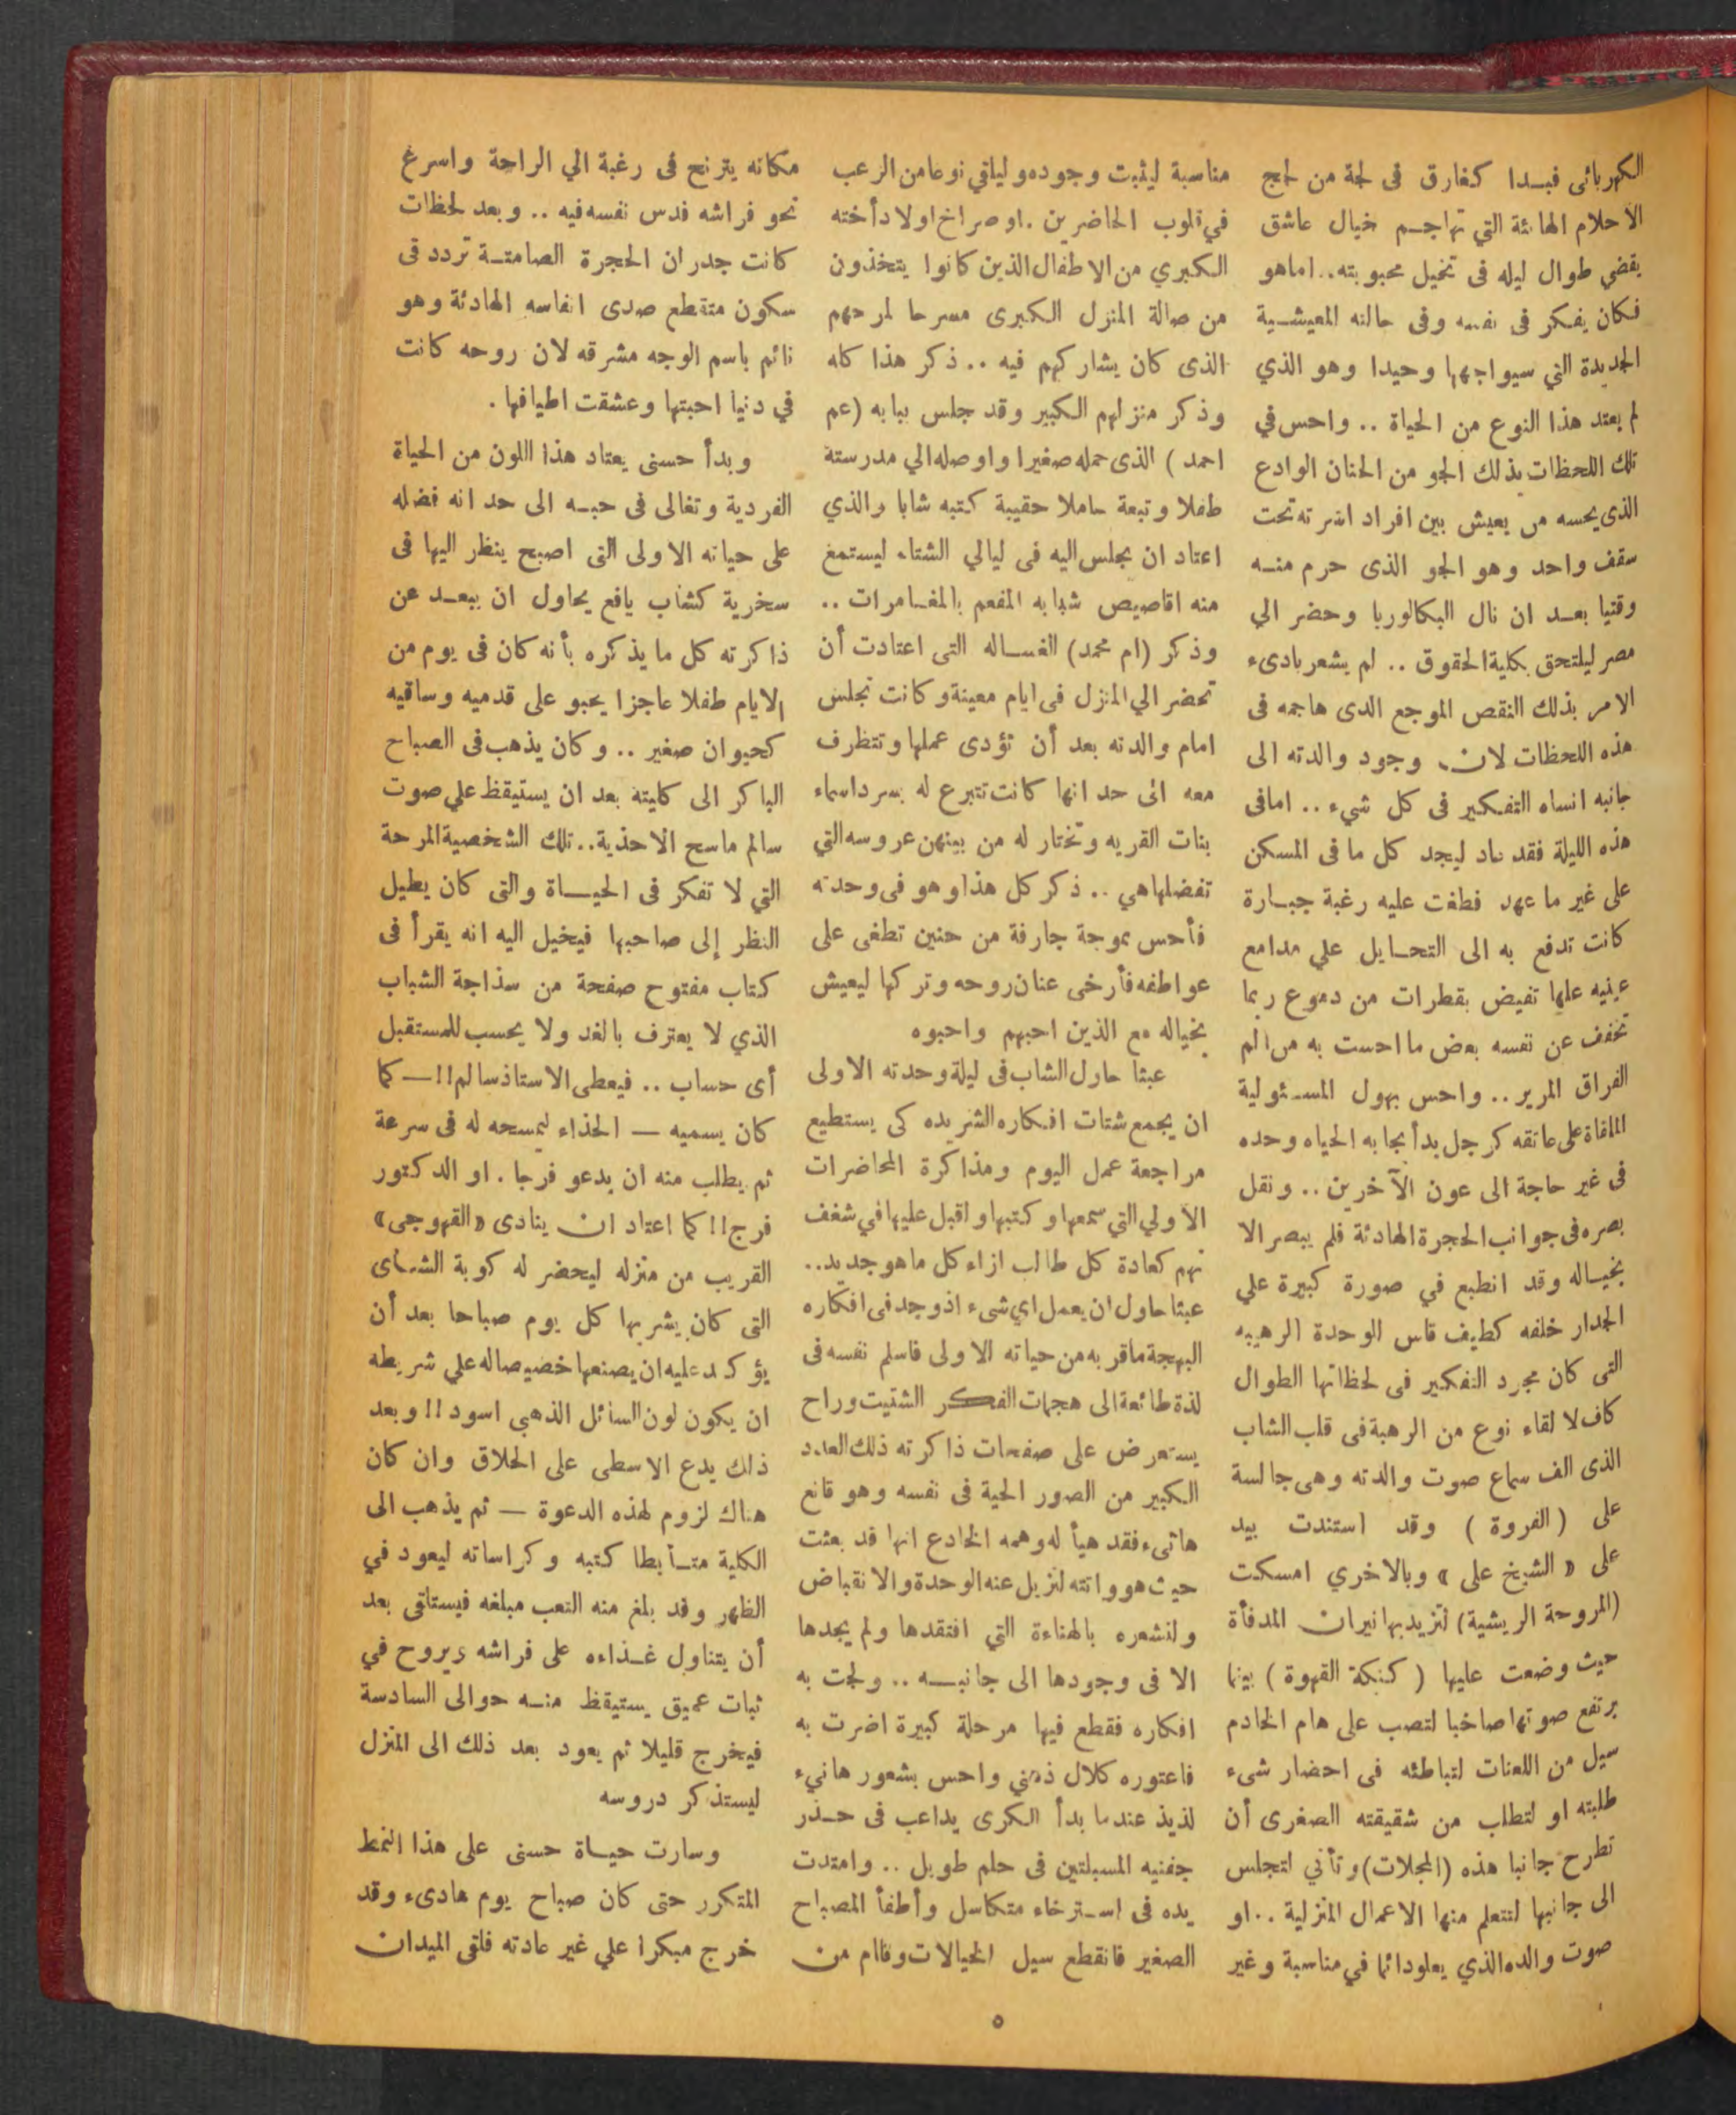 الكهربائى فبدا كغارق فى لجة من لجج
الاحلام الهائة التي تهاجم خيال عاشق
يقضي طوال ليله فى تخيل محبوبته.. اماهو
فكان يفكر فى نفسه وفى حالته المعيشية
الجديدة التي سيواجهها وحيدا وهو الذي
لم يعتد هذا النوع من الحياة .. واحس في
تلك اللحظات بذلك الجو من الحنان الوادع
الذى يحسه من يعيش بين افراد اسرته تحت
سقف واحد وهو الجو الذى حرم منه
وقتيا بعد ان نال البكالوريا وحضر الي
مصر ليلتحق بكلية الحقوق .. لم يشعر بادىء
الامر بذلك النقص الموجع الدى هاجمه فى
هذه اللحظات لان وجود والدته الى
جانبه انساه التفكير فى كل شيء .. امافى
هذه الليلة فقد عاد ليجد كل ما فى المسكن
على غير ما عهد فطغت عليه رغبة جبارة
كانت تدفع به الى التحايل علي مدامع
عينيه علها تفيض بقطرات من دموع ربما
تخفف عن نفسه بعض ما احست به من الم
الفراق المرير .. واحس بهول المسئولية
الملقاة على عاتقه كرجل بدأ يجابه الحياه وحده
فى غير حاجة الى عون الآخرين .. ونقل
بصره فى جوانب الحجرة الهادئة فلم يبصر الا
بخياله وقد انطبع في صورة كبيرة علي
الجدار خلفه كطيف قاس الوحدة الرهيبه
التى كان مجرد التفكير فى لحظاتها الطوال
كاف لا لقاء نوع من الرهبة فى قلب الشاب
الذى الف سماع صوت والدته وهى جالسة
على ( الفروة ) وقد استندت بيد
على « الشيخ على » وبالاخري امسكت
(المروحة الريشية) لتزيد بها نيران المدفأة
حيث وضعت عليها ( كنكة القهوة ) بينما
يرتفع صوتها صاخبا لتصب على هام الخادم
سيل من اللعنات لتباطئه فى احضار شىء
طلبته او لتطلب من شقيقته الصغرى أن
تطرح جانبا هذه (المجلات) وتأتي لتجلس
الى جانبها لتتعلم منها الاعمال المنزلية .. او
صوت والده الذي يعلودائما في مناسبة وغير
مناسبة ليثبت وجوده و ليلقي نوعا من الرعب
في قلوب الحاضرين . او صراخ اولاد أخته
الكبري من الاطفال الذين كانوا يتخذون
من صالة المنزل الكبرى مسرحا لمرحهم
الذى كان يشاركهم فيه .. ذكر هذا كله
وذكر منزلهم الكبير وقد جلس ببابه (عم
احمد ) الذى حمله صغيرا واوصله الي مدرسته
طفلا وتبعة حاملا حقيبة كتبه شابا والذي
اعتاد ان يجلس اليه فى ليالي الشتاء ليستمع
منه اقاصيص شبابه المفعم بالمغامرات ..
وذكر (ام محمد) الغساله التى اعتادت أن
تحضر الي المنزل فى ايام معينة وكانت تجلس
امام والدته بعد أن تؤدى عملها وتتظرف
معه الى حد انها كانت تتبرع له بسرد اسماء
بنات القريه وتختار له من بينهن عروسه التي
تفضلها هي .. ذكر كل هذا وهو فى وحدته
فأحس بموجة جارفة من حنين تطغى على
عواطفه فأرخى عنان روحه وتركها ليعيش
بخياله مع الذين احبهم واحبوه
عبثا حاول الشاب فى ليلة وحدته الاولى
ان يجمع شتات افكاره الشريده كى يستطيع
مراجعة عمل اليوم ومذاكرة المحاضرات
الاولي التي سمعها وكتبها واقبل عليها في شغف
نهم كعادة كل طالب ازاء كل ماهو جديد..
عبثا حاول ان يعمل اي شىء اذ وجد فى افكاره
البهجة ماقر به من حياته الاولى فاسلم نفسه فى
لذة طائعة الى هجمات الفكر الشتيت وراح
يستعرض على صفحات ذاكرته ذلك العدد
الكبير من الصور الحية فى نفسه وهو قانع
هانىء فقد هيأ له وهمه الخادع انها قد بعثت
حيث هو واتته لتزيل عنه الوحدة والانقباض
ولتشعره بالهناءة التي افتقدها ولم يجدها
الا فى وجودها الى جانبه .. ولجت به
افكاره فقطع فيها مرحلة كبيرة اضرت به
فاعتوره كلال ذهني واحس بشعور هانيء
لذيذ عندما بدأ الكرى يداعب فى حذر
جفنيه المسبلتين فى حلم طويل .. وامتدت
يده فى استرخاء متكاسل وأطفأ المصباح
الصغير فانقطع سيل الخيالات وقام من
مكانه يترنح فى رغبة الي الراحة واسرع
نحو فراشه فدس نفسه فيه .. وبعد لحظات
كانت جدران الحجرة الصامتة تردد فى
سكون متقطع صدى انفاسه الهادئة وهو
نائم باسم الوجه مشرقه لان روحه كانت
في دنيا احبتها وعشقت اطيافها .
وبدأ حسنى يعتاد هذا اللون من الحياة
الفردية وتغالى فى حبه الى حد انه فضله
على حياته الاولى التى اصبح ينظر اليها فى
سخرية كشاب يافع يحاول ان يبعد عن
ذاكرته كل ما يذكره بأنه كان فى يوم من
الايام طفلا عاجزا يحبو على قدميه وساقيه
كحيوان صغير .. وكان يذهب فى الصباح
الباكر الى كليته بعد ان يستيقظ علي صوت
سالم ماسح الاحذية.. تلك الشخصية المرحة
التي لا تفكر فى الحياة والتى كان يطيل
النظر إلى صاحبها فيخيل اليه انه يقرأ فى
كتاب مفتوح صفحة من سذاجة الشباب
الذي لا يعترف بالغد ولا يحسب للمستقبل
أى حساب .. فيعطى الاستاذ سالم!! — كما
كان يسميه — الحذاء ليمسحه له فى سرعة
ثم يطلب منه ان يدعو فرجا . او الدكتور
فرج!! كما اعتاد ان ينادى «القهوجى»
القريب من منزله ليحضر له كوبة الشاى
التى كان يشربها كل يوم صباحا بعد أن
يؤكد عليه ان يصنعها خصيصا له علي شريطه
ان يكون لون السائل الذهبي اسود!! وبعد
ذلك يدع الاسطى على الحلاق وان كان
هناك لزوم لهذه الدعوة — ثم يذهب الى
الكلية متأبطا كتبه وكراساته ليعود في
الظهر وقد بلغ منه التعب مبلغه فيستلقى بعد
أن يتناول غذاءه على فراشه ويروح في
ثبات عميق يستيقظ منه حوالى السادسة
فيخرج قليلا ثم يعود بعد ذلك الى المنزل
ليستذكر دروسه
وسارت حياة حسنى على هذا النمط
المتكرر حتى كان صباح يوم هادىء وقد
خرج مبكرا علي غير عادته فلقى الميدان
٥